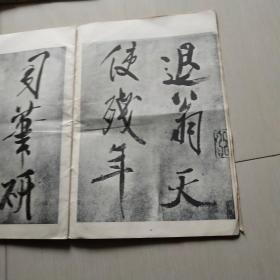 退翁天
使残年
司笔研